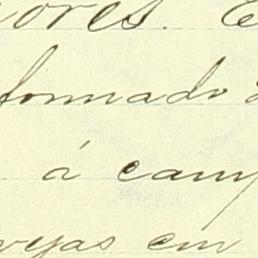 ores. E
formado
á camp
yas em